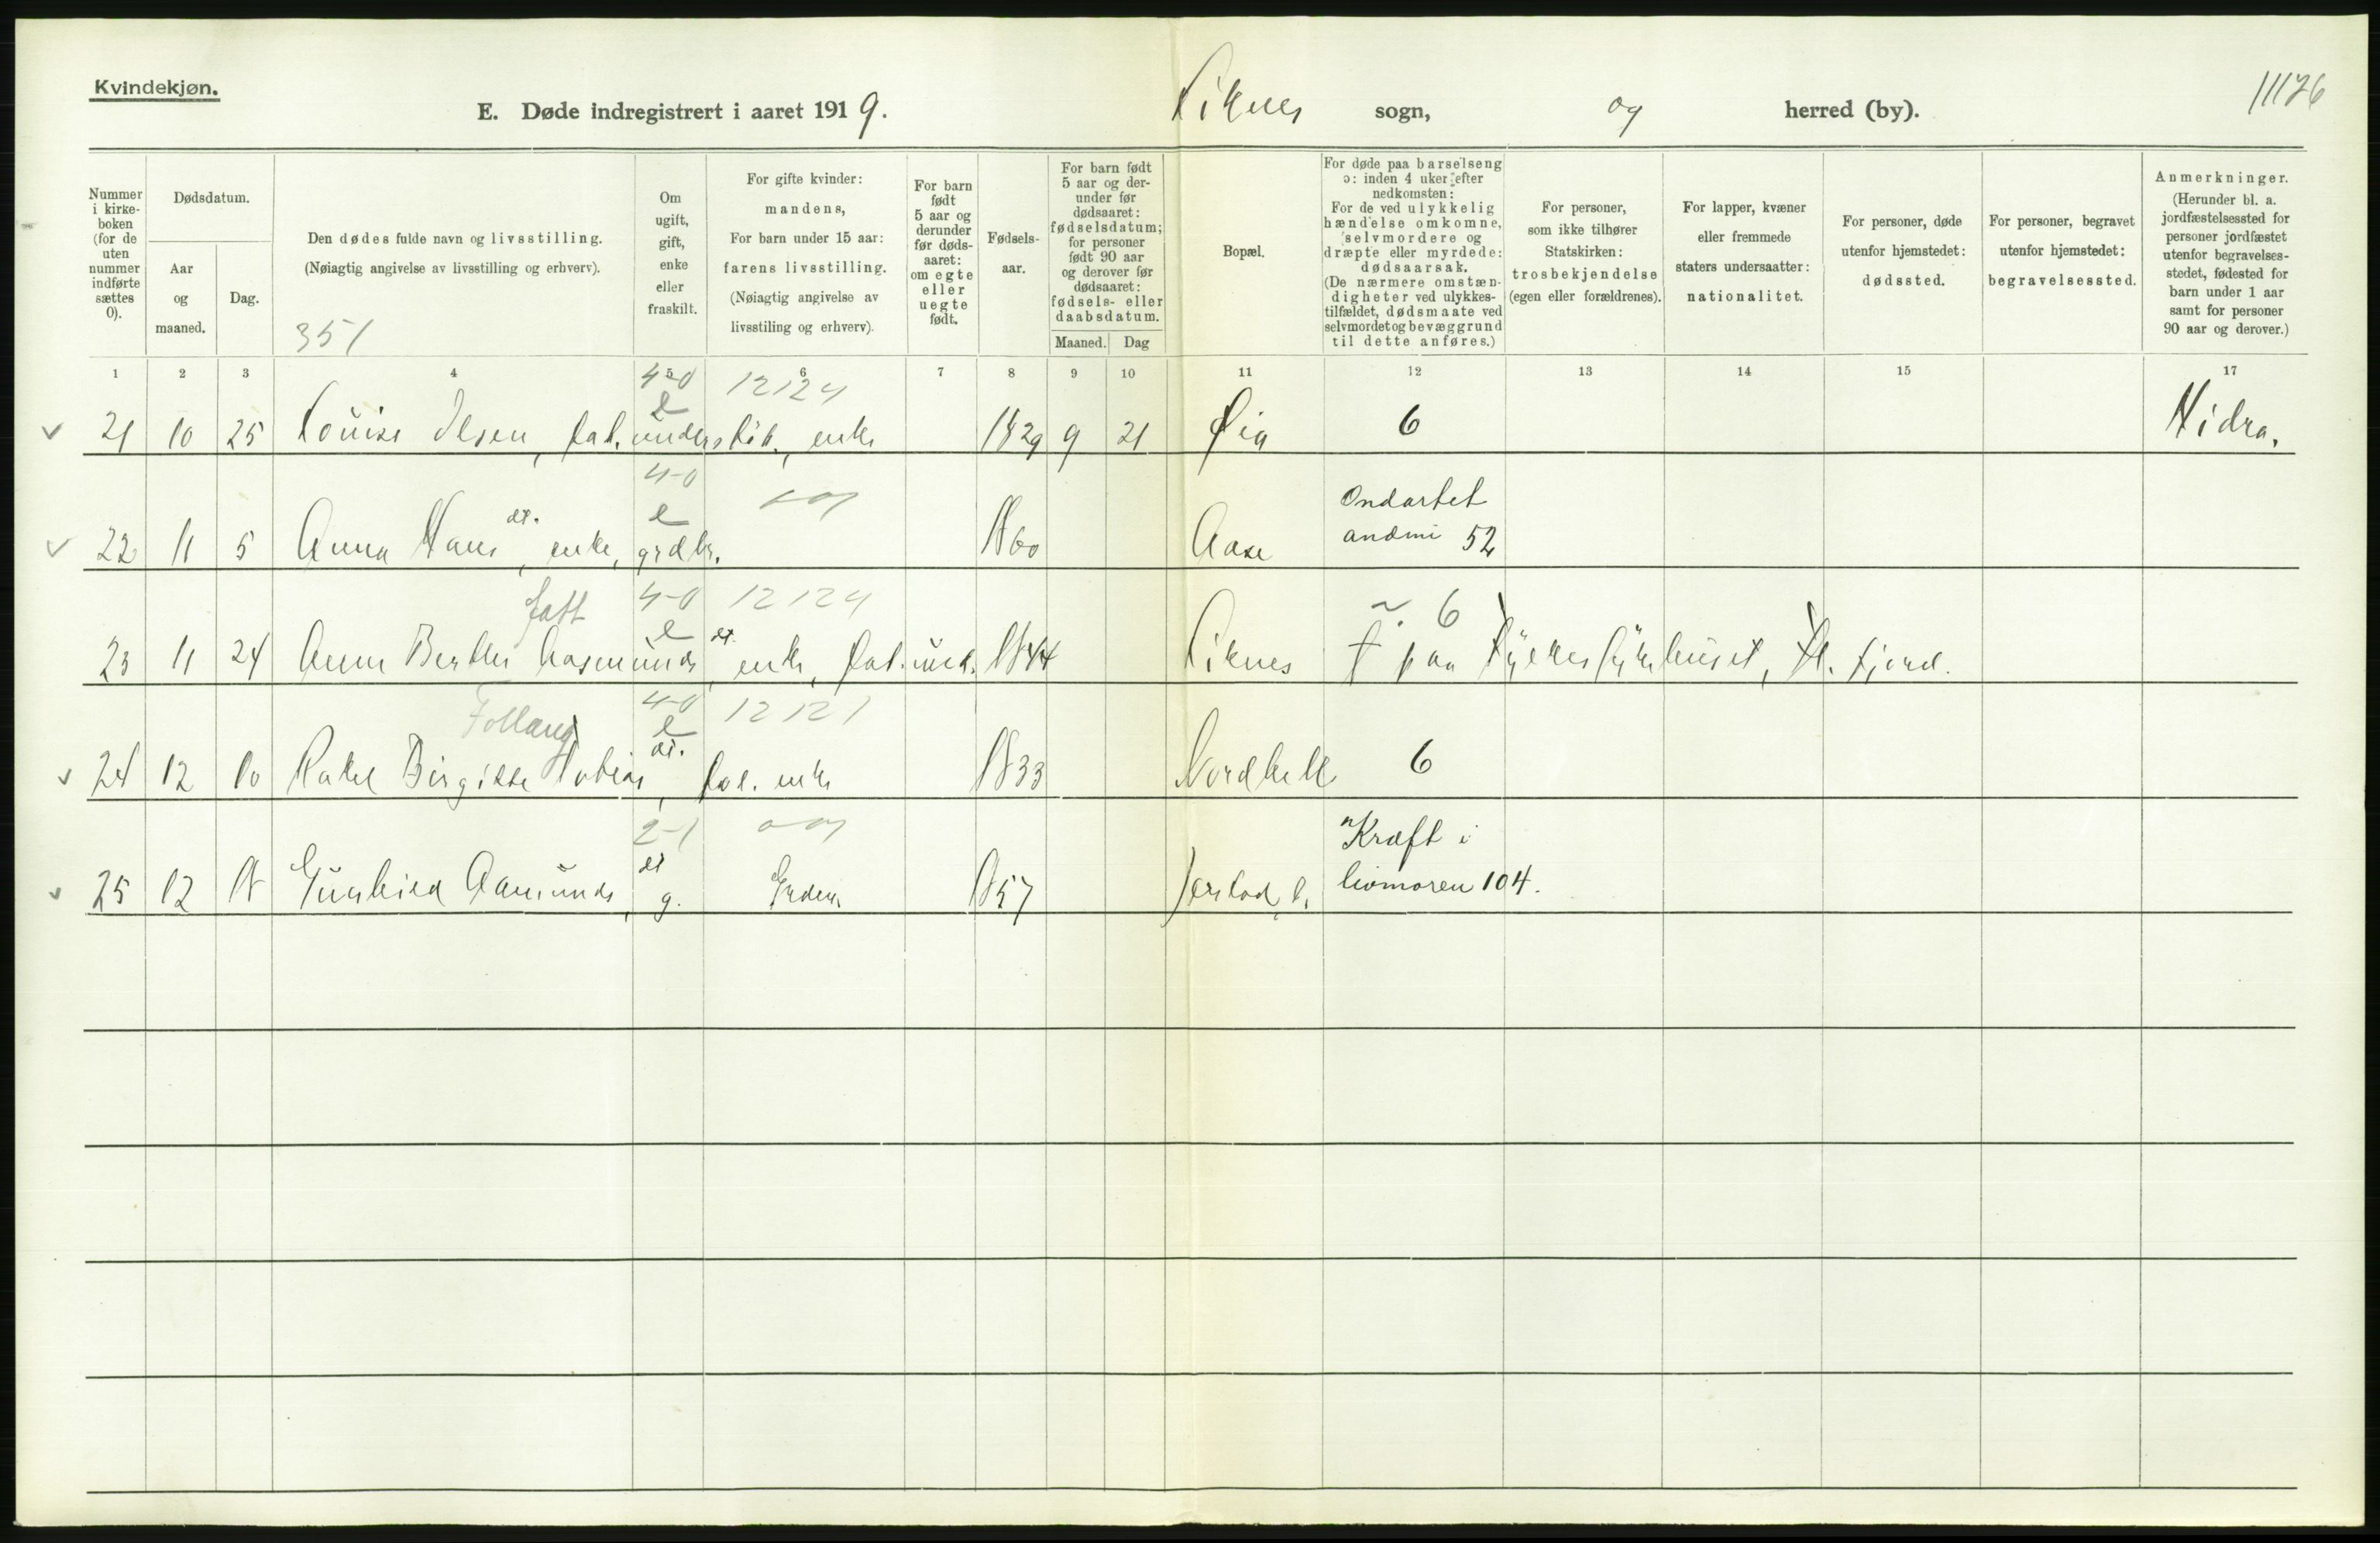 Kvindekjøn.
E. Døde indregistrert i aaret 1919. Liknes sogn, og herred (by).
11176
Nummer i kirke-boken (for de uten nummer indførte sættes 0).
Dødsdatum.
Aar og maaned.
Dag.
Den dødes fulde navn og livsstilling.
(Nøiagtig angivelse av livsstilling og erhverv).
351
Om ugift, gift, enke eller fraskilt.
For gifte kvinder: mandens,
For barn under 15 aar: farens livsstilling.
(Nøiagtig angivelse av livsstiling og erhverv).
For barn født 5 aar og derunder før døds-aaret: om egte eller uegte født.
Fødsels-aar.
For barn født 5 aar og der-under før dødsaaret: fødselsdatum; for personer født 90 aar og derover før dødsaaret: fødsels- eller daabsdatum.
Maaned. Dag
Bopæl.
For døde paa barselseng ɔ: inden 4 uker efter nedkomsten:
For de ved ulykkelig hændelse omkomne, selvmordere og dræpte eller myrdede: dødsaarsak.
(De nærmere omstæn-digheter ved ulykkes-tilfældet, dødsmaate ved selvmordet og bevæggrund til dette anføres.)
For personer, som ikke tilhører Statskirken: trosbekjendelse (egen eller forældrenes).
For lapper, kvæner eller fremmede staters undersaatter: nationalitet.
For personer, døde utenfor hjemstedet: dødssted.
For personer, begravet utenfor hjemstedet: begravelsessted.
Anmerkninger.
(Herunder bl. a. jordfæstelsessted for personer jordfæstet utenfor begravelses-stedet, fødested for barn under 1 aar samt for personer 90 aar og derover.)
1 2 3 4 5 6 7 8 9 10 11 12 13 14 15 17
4-0 12124
e
21 10 25 Louise Olsen, fat. understøt., enke 1829 9 21 Øia 6 Hidra.
4-0
22 11 5 Anna Hans dt., enke, grdbr. e 1860 Aase Ondartet anæmi 52
4-0 12124
e
23 11 24 Anne Berthe Aasmunds dt. enke, fat. und. 1844 Liknes 6 † paa sykehuset, Fl. fjord.
Folland 4-0 12121
e
24 12 10 Rakel Birgitte Tobias dt., fat. enke 1833 Nordhell 6
2-1
25 12 18 Gunhild Aamunds dt, g. Grdbr. 1857 Jerstad, l. Kræft i livmoren 104.